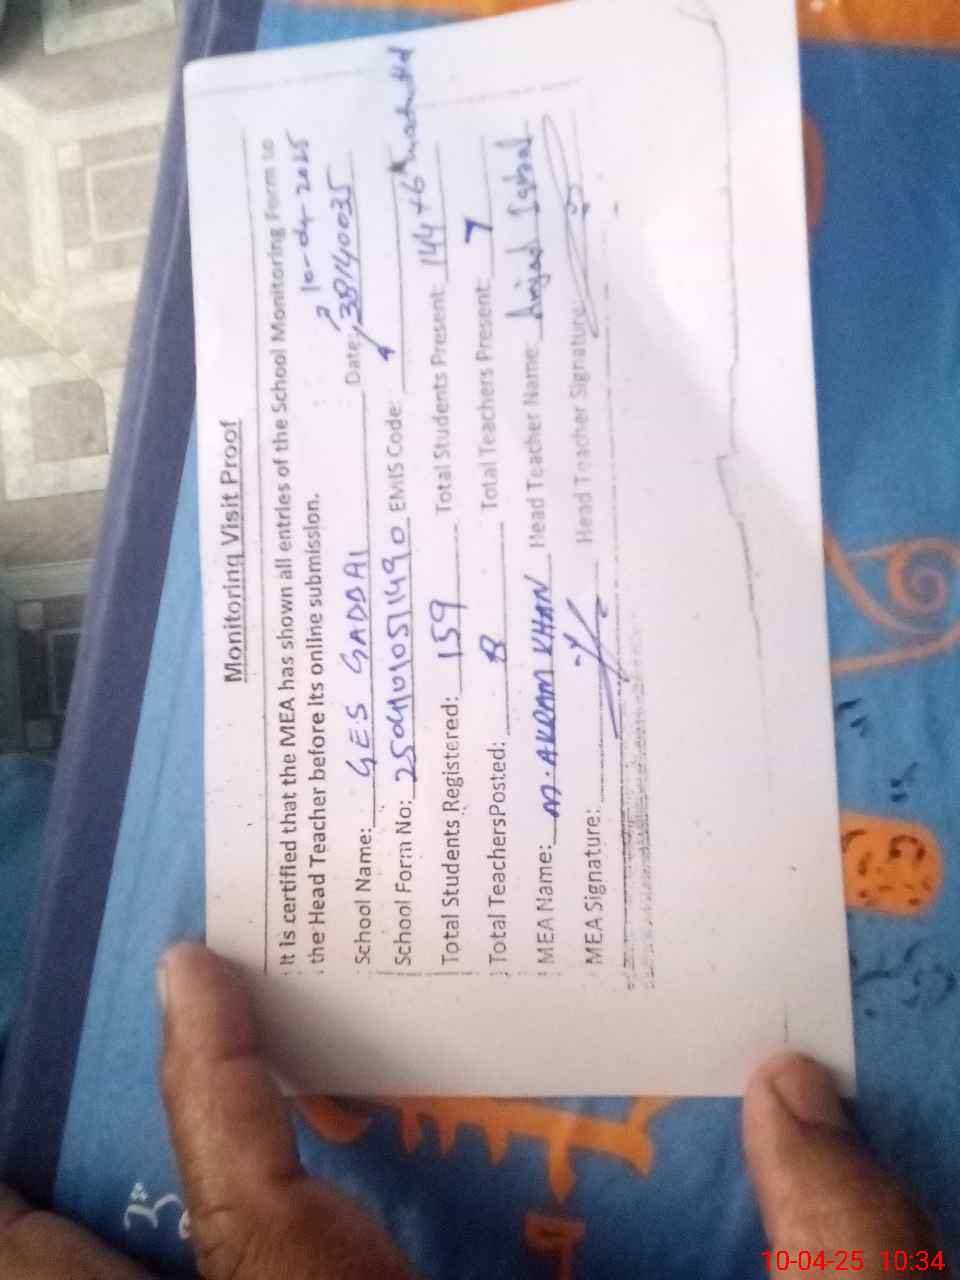 Monitoring Visit Proof
It is certified that the MEA has shown all entries of the School Monitoring Form to
the Head Teacher before its online submission.
10-04-2025
School Name: GES GADDAI Date: 38140035
School Form No: 2504101051490 EMIS Code:
Total Students Registered: 159 Total Students Present: 144+6
Total TeachersPosted: 8 Total Teachers Present: 7
MEA Name: M. AKRAM KHAN Head Teacher Name: Amjad Iqbal
MEA Signature: Head Teacher Signature:
10-04-25 10:34